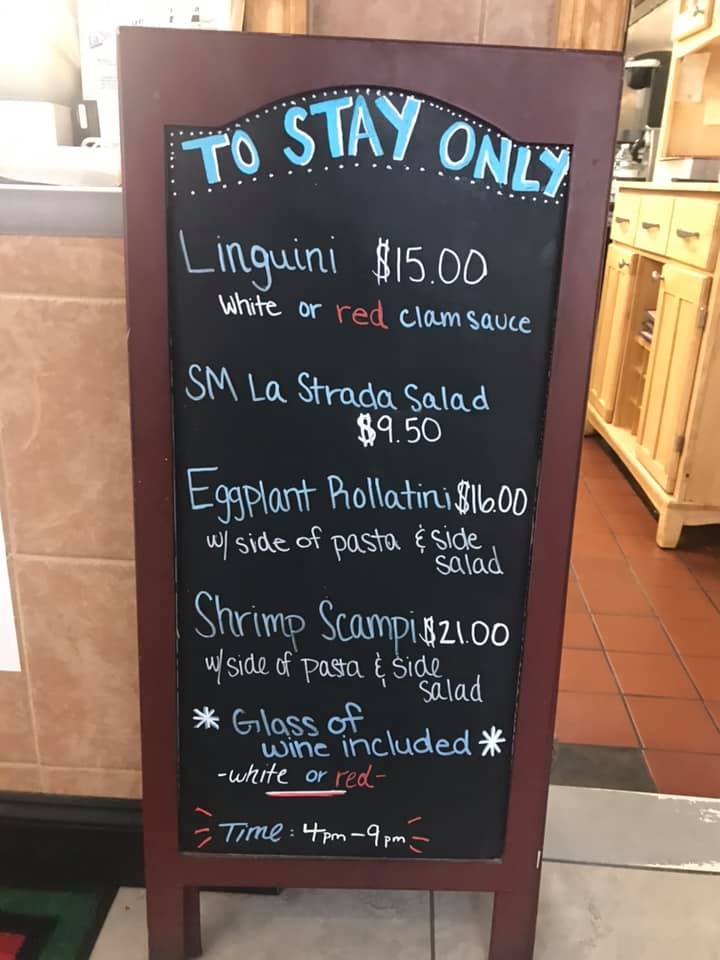 TO STAY ONLY
Linguini $15.00
White or red clam sauce
SM La Strada Salad
$9.50
Eggplant Rollatini $16.00
w/ side of pasta & side
salad
Shrimp Scampi $21.00
w/ side of pasta & side
salad
* Glass of
wine included *
-white or red-
Time: 4pm-9pm